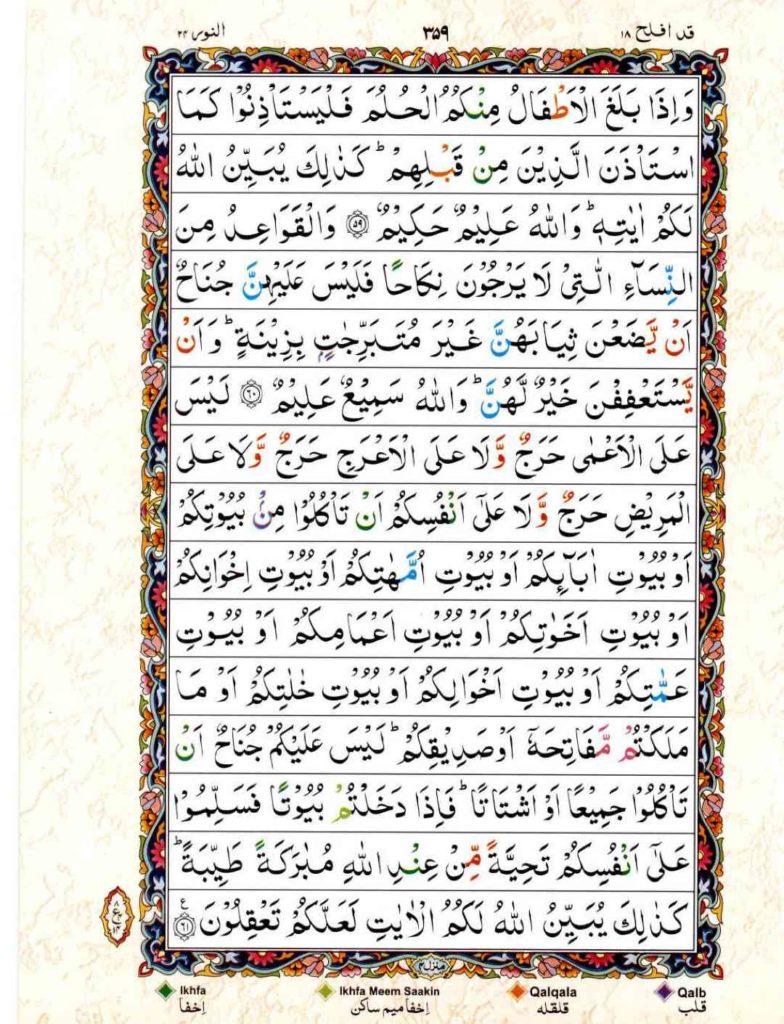 قد افلح ١٨ ٣٥٩ النور ٢٤
وَاِذَا بَلَغَ الْاَطْفَالُ مِنْكُمُ الْحُلُمَ فَلْيَسْتَاْذِنُوْا كَمَا
اسْتَاْذَنَ الَّذِيْنَ مِنْ قَبْلِهِمْ ؕ كَذٰلِكَ يُبَيِّنُ اللّٰهُ
لَكُمْ اٰيٰتِهٖ ؕ وَاللّٰهُ عَلِيْمٌ حَكِيْمٌ ﴿٥٩﴾ وَالْقَوَاعِدُ مِنَ
النِّسَآءِ الّٰتِيْ لَا يَرْجُوْنَ نِكَاحًا فَلَيْسَ عَلَيْهِنَّ جُنَاحٌ
اَنْ يَّضَعْنَ ثِيَابَهُنَّ غَيْرَ مُتَبَرِّجٰتٍۭ بِزِيْنَةٍ ؕ وَاَنْ
يَّسْتَعْفِفْنَ خَيْرٌ لَّهُنَّ ؕ وَاللّٰهُ سَمِيْعٌ عَلِيْمٌ ﴿٦٠﴾ لَيْسَ
عَلَى الْاَعْمٰى حَرَجٌ وَّلَا عَلَى الْاَعْرَجِ حَرَجٌ وَّلَا عَلَى
الْمَرِيْضِ حَرَجٌ وَّلَا عَلٰٓى اَنْفُسِكُمْ اَنْ تَاْكُلُوْا مِنْۢ بُيُوْتِكُمْ
اَوْ بُيُوْتِ اٰبَآئِكُمْ اَوْ بُيُوْتِ اُمَّهٰتِكُمْ اَوْ بُيُوْتِ اِخْوَانِكُمْ
اَوْ بُيُوْتِ اَخَوٰتِكُمْ اَوْ بُيُوْتِ اَعْمَامِكُمْ اَوْ بُيُوْتِ
عَمّٰتِكُمْ اَوْ بُيُوْتِ اَخْوَالِكُمْ اَوْ بُيُوْتِ خٰلٰتِكُمْ اَوْ مَا
مَلَكْتُمْ مَّفَاتِحَهٗٓ اَوْ صَدِيْقِكُمْ ؕ لَيْسَ عَلَيْكُمْ جُنَاحٌ اَنْ
تَاْكُلُوْا جَمِيْعًا اَوْ اَشْتَاتًا ؕ فَاِذَا دَخَلْتُمْ بُيُوْتًا فَسَلِّمُوْا
عَلٰٓى اَنْفُسِكُمْ تَحِيَّةً مِّنْ عِنْدِ اللّٰهِ مُبٰرَكَةً طَيِّبَةً ؕ
كَذٰلِكَ يُبَيِّنُ اللّٰهُ لَكُمُ الْاٰيٰتِ لَعَلَّكُمْ تَعْقِلُوْنَ ﴿٦١﴾ ع
منزل ٤
Ikhfa Ikhfa Meem Saakin Qalqala Qalb
اِخفا اِخفا میم ساکن قلقله قلب